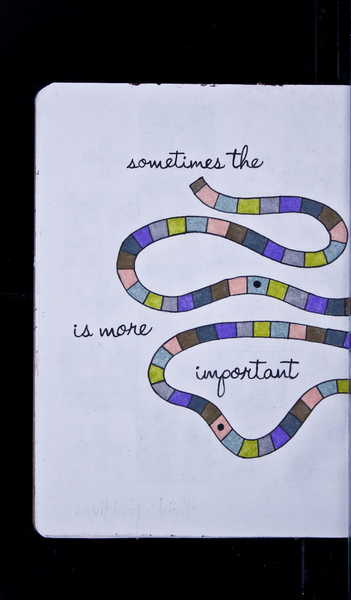 sometimes the
is more
important